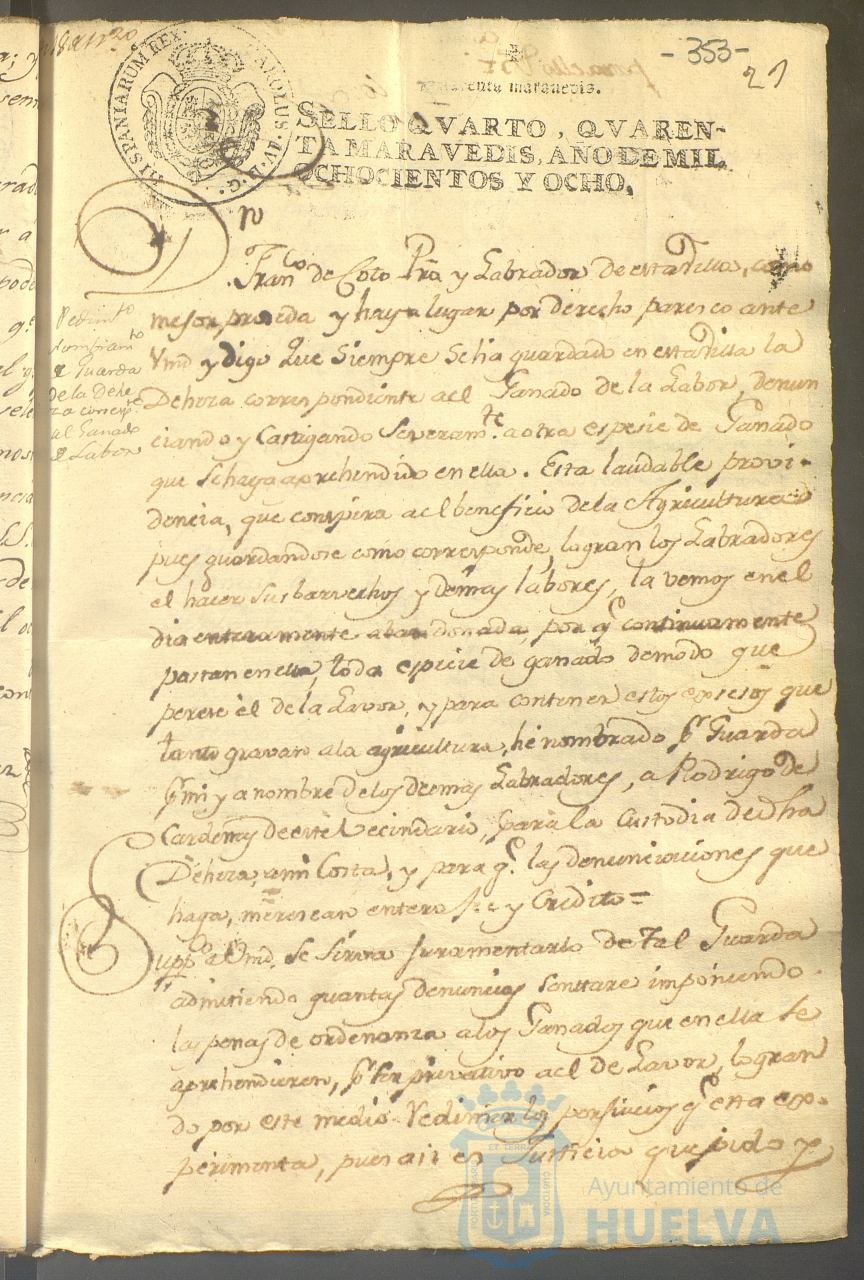 -353-
21
HISPANIARUM REX. CAROLUS. IV. D. G.
quarenta maravedis.
SELLO QVARTO, QVAREN-
TA MARAVEDIS, AÑO DE MIL
OCHOCIENTOS Y OCHO.
Dn
Franco de Coto Pra y Labrador de esta Villa, como
mejor proseda y haya lugar por derecho paresco ante
Vmd y digo Que Siempre se ha guardado en esta Villa la
Deheza correspondiente a el Ganado de la Labor, denun
ciando y Castigando Severamte a otra espesie de Ganado
que se haya aprehendido en ella. Esta laudable provi-
dencia, que conspira a el beneficio de la Agricultura
pues guardandose como corresponde, logran los Labradores
el haser sus barvechos y demas labores, la vemos en el
dia enteramente abandonada, por qe continuamente
pastan en ella, toda espesie de ganado de modo que
perese el de la Lavor, y para contener estos exsesos que
tanto gravan a la agricultura, he nombrado pr Guarda
pr mi y a nombre de los demas Labradores, a Rodrigo de
Cardenas de este Vecindario, para la Custodia de dha
Deheza, a mi Costa, y para qe las denunciaciones que
haga, merescan entera fee y Credito =
Suppco a Vmd. se sirva juramentarlo de tal Guarda
admitiendo quantas denuncias sentare imponiendo
las penas de ordenanza a los Ganados que en ella se
aprehendieren, pr ser privativo a el de Lavor, logran
do por este medio redimir los perjuicios qe esta ex-
perimenta, pues asi es Justicia que pido
Pedimto
nombramto
de Guarda
de la Dehe
za correspte
al Ganado
de Labor
Ayuntamiento de
HUELVA